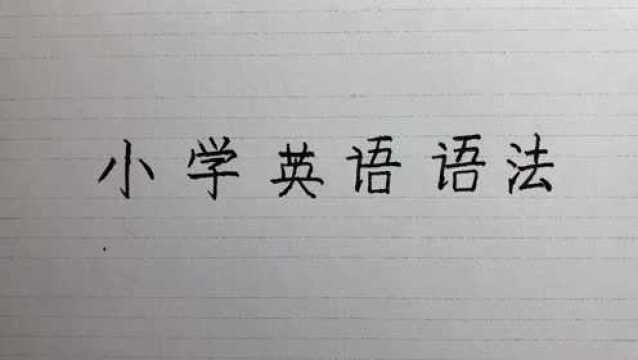 小学英语语法